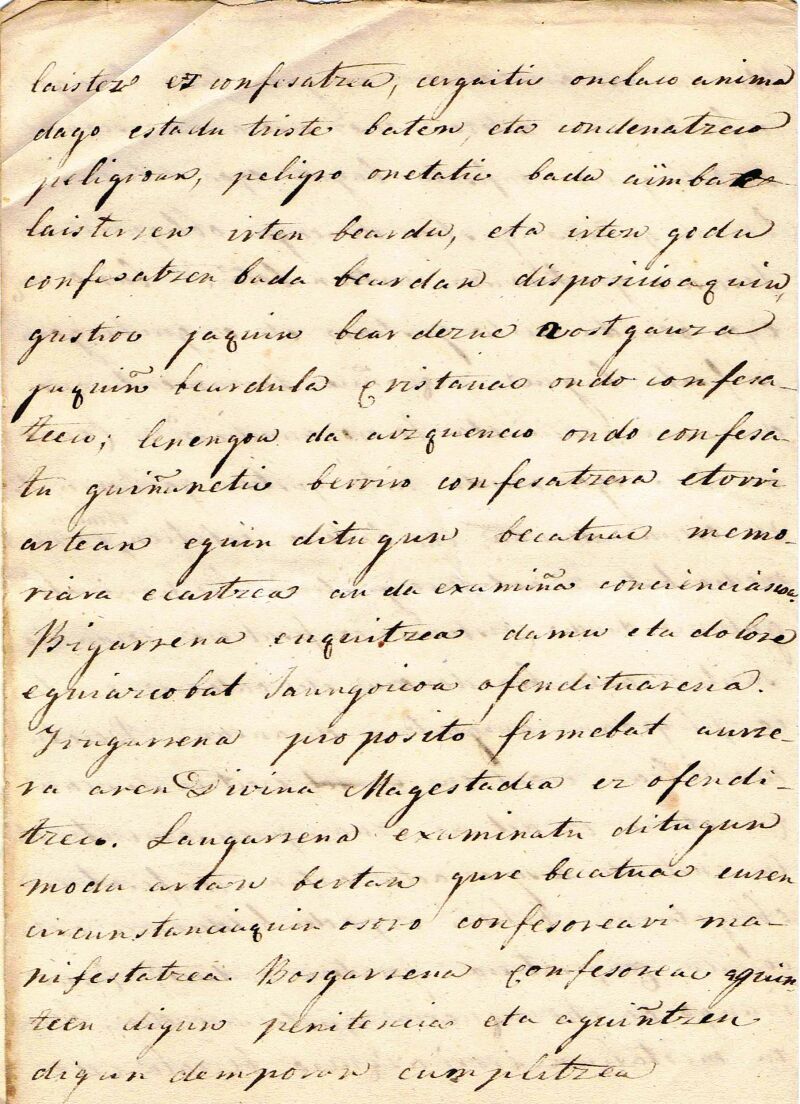 laister ez confesatzea, cergaitic onelaco anima
dago estadu triste baten, eta condenatzeco
peligroan, peligro onetatic bada aiimbat
laisterren irten beardu, eta irtengodu
confesatzen bada beardan disposicioaquin,
gustioc jaquin bearderue bostgauza
jaquiñ beardula Cristauac ondo confesa-
tzeco; lenengoa da aizquenero ondo confesa-
tu guiñanetic berriro confesatzera etorri
artean eguin ditugun becatuac memo-
riara ecartzea au da examiña concienciacoa.
Bigarrena euquitzea damu eta dolore
eguiazcobat Jaungoicoa ofendituarena.
Irugarrena proposito firmebat aurre-
ra aren Divina Magestadea ez ofendi-
tzeco. Laugarrena examinatu ditugun
modu artan bertan gure becatuac euren
circunstanciaquin osoro confesoreari ma-
nifestatzea. Bosgarrena Confesorea aguin-
tzen digun penitencia eta aguiñtzen
digun demporan cumplitzea